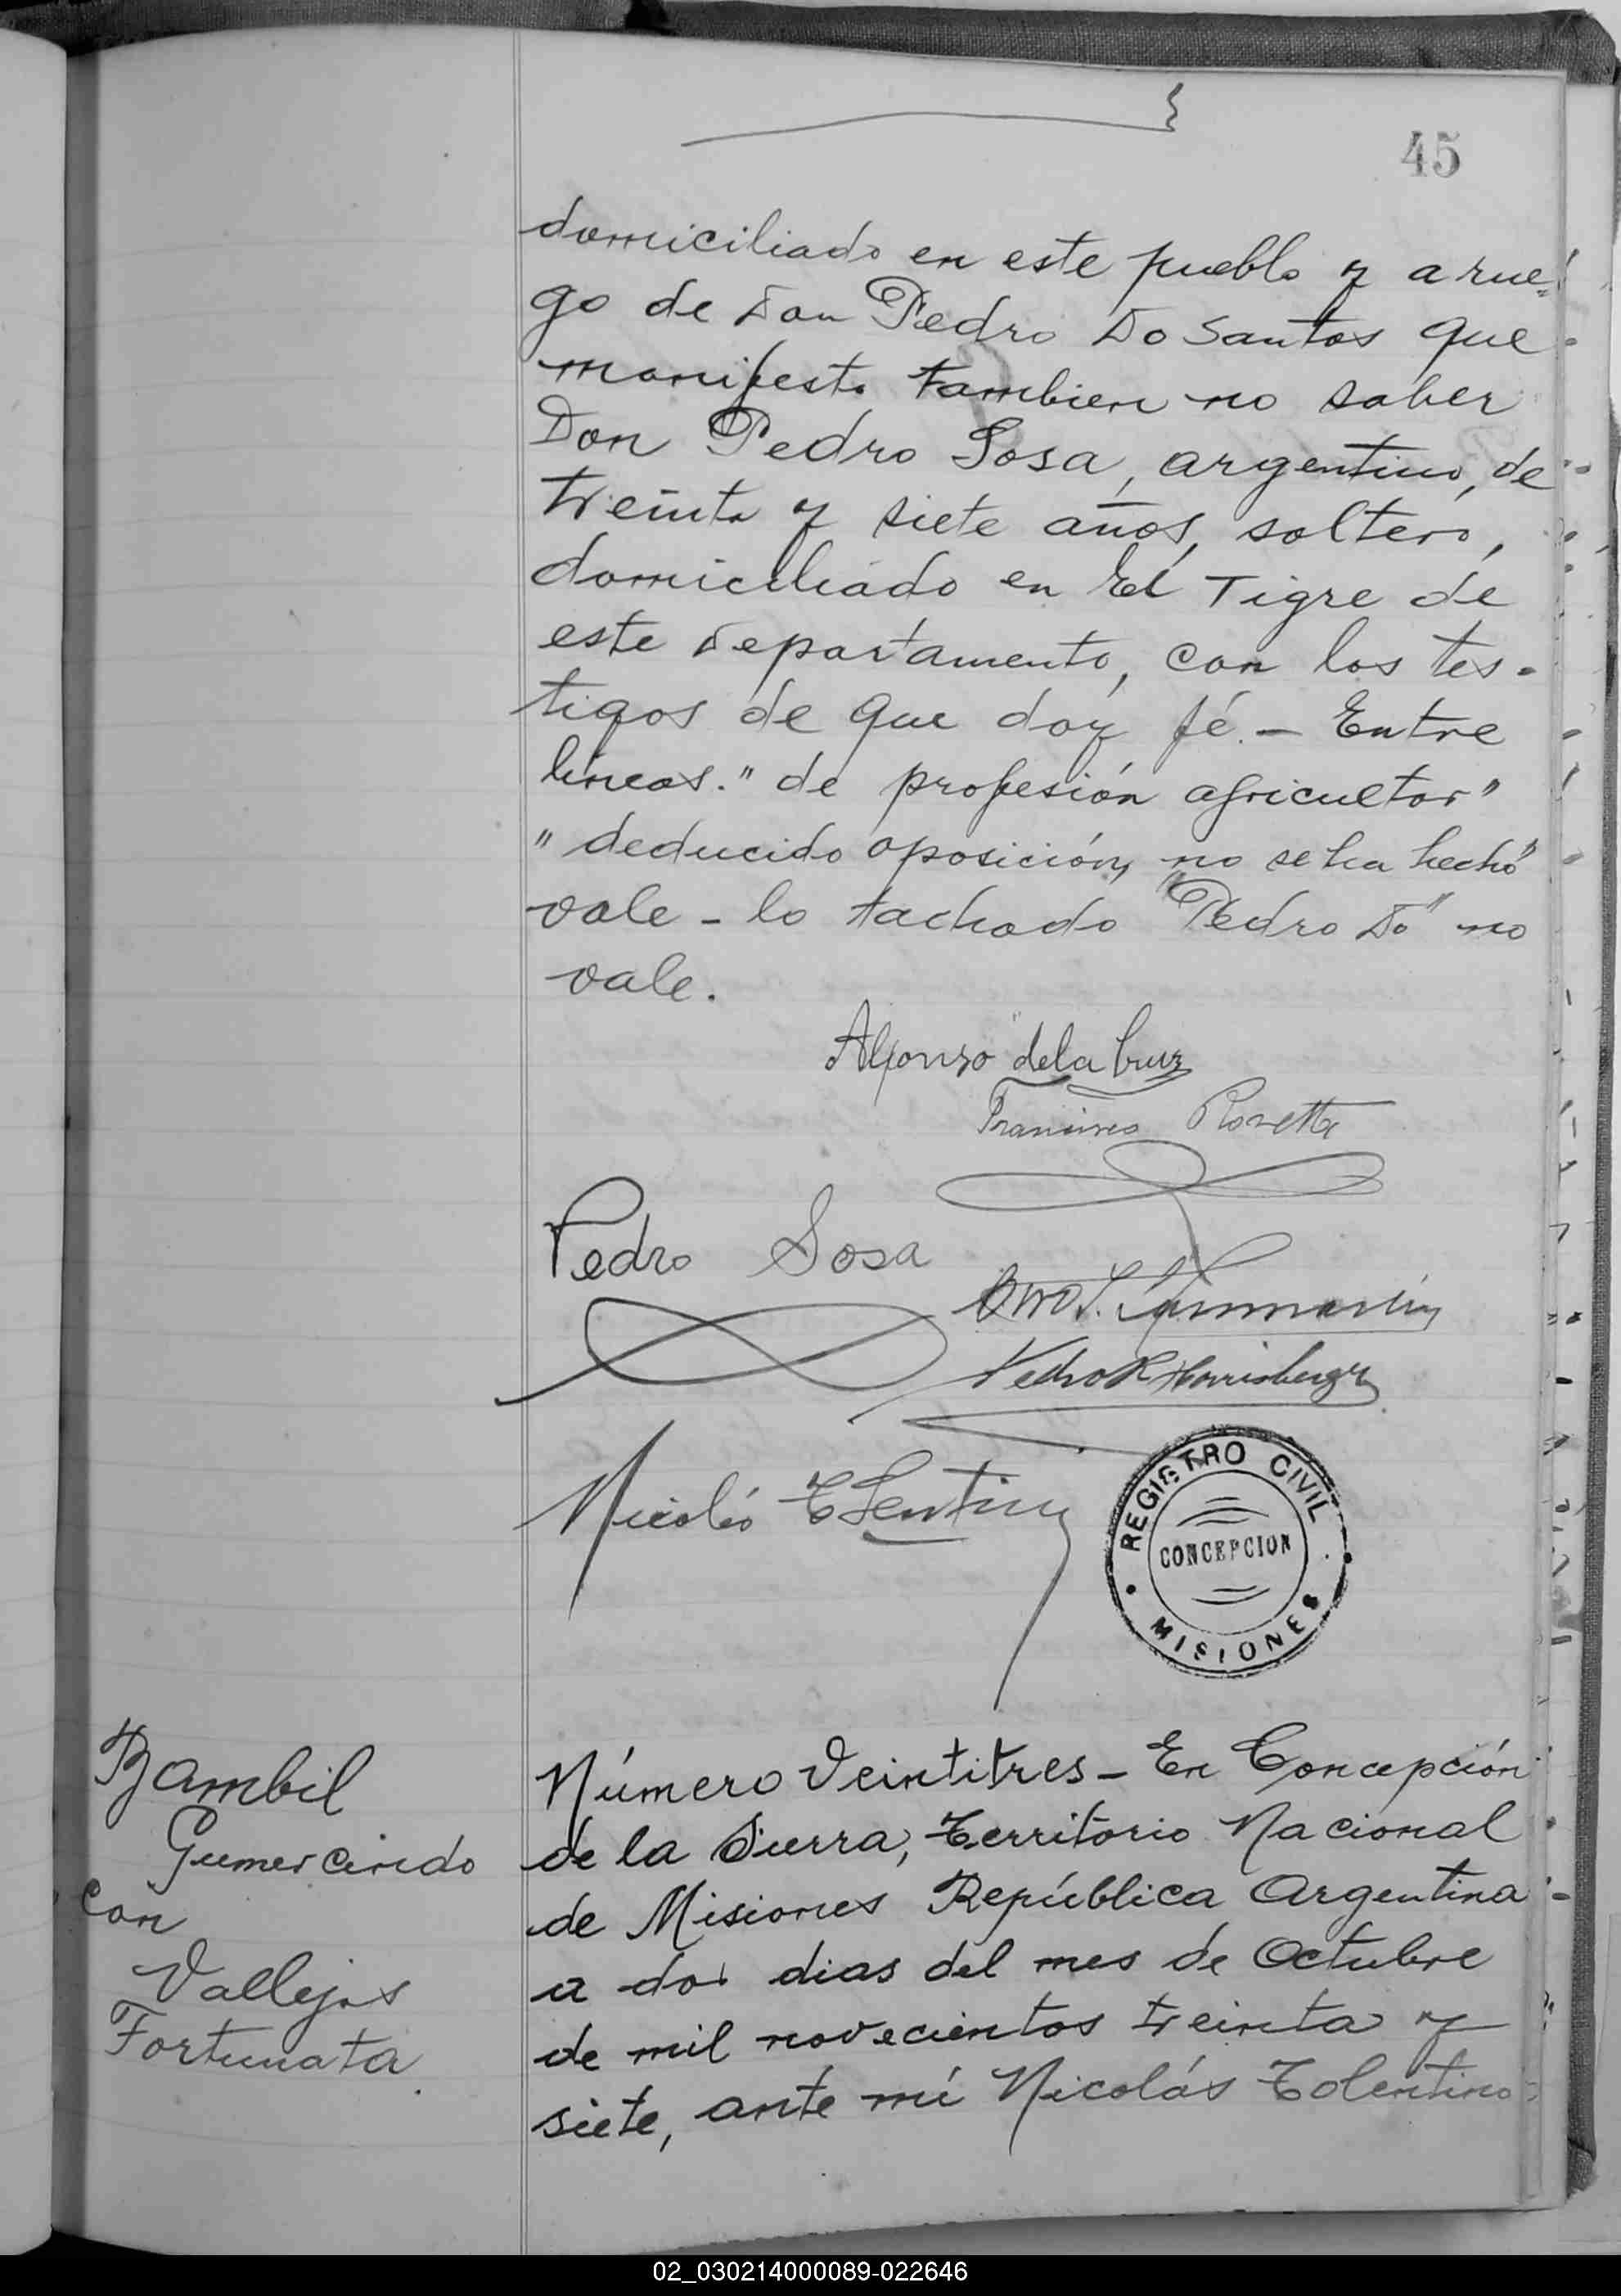 45
domiciliado en este pueblo y a rue=
go de Don Pedro Do Santos que
manifesto tambien no saber
Don Pedro Sosa, argentino, de
treinta y siete años, soltero,
domiciliado en El Tigre de
este Departamento, con los tes-
tigos de que doy fé.- Entre
lineas." de profesión agricultor"
" deducido oposición, no se ha hecho"
vale - lo tachado "Pedro Do" no
vale.
Alfonso de la Cruz
Francisco
Pedro Sosa
Pedro R
Nicolás Tolentino
REGISTRO CIVIL
CONCEPCION
MISIONES
Bambil
Gumercindo
con
Vallejos
Fortunata
Número Veintitres - En Concepción
de la Sierra, Territorio Nacional
de Misiones República Argentina
a dos dias del mes de Octubre
de mil novecientos treinta y
siete, ante mí Nicolás Tolentino
02_030214000089-022646